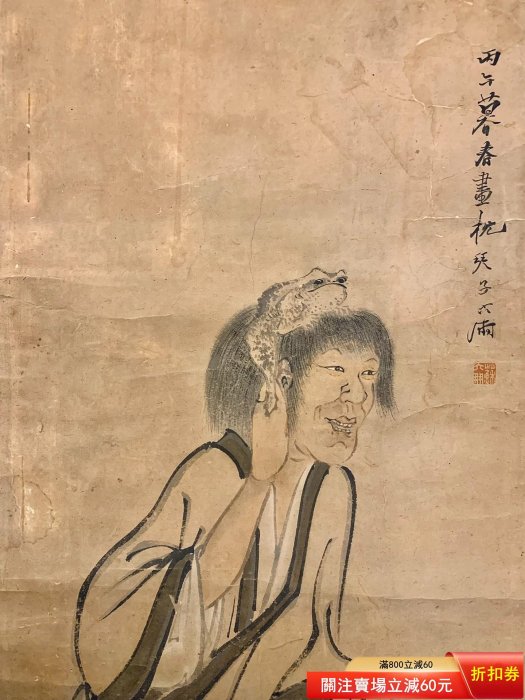 丙午暮春畫枕琴子六滿
滿800立減60
關注賣場立減60元
折扣券